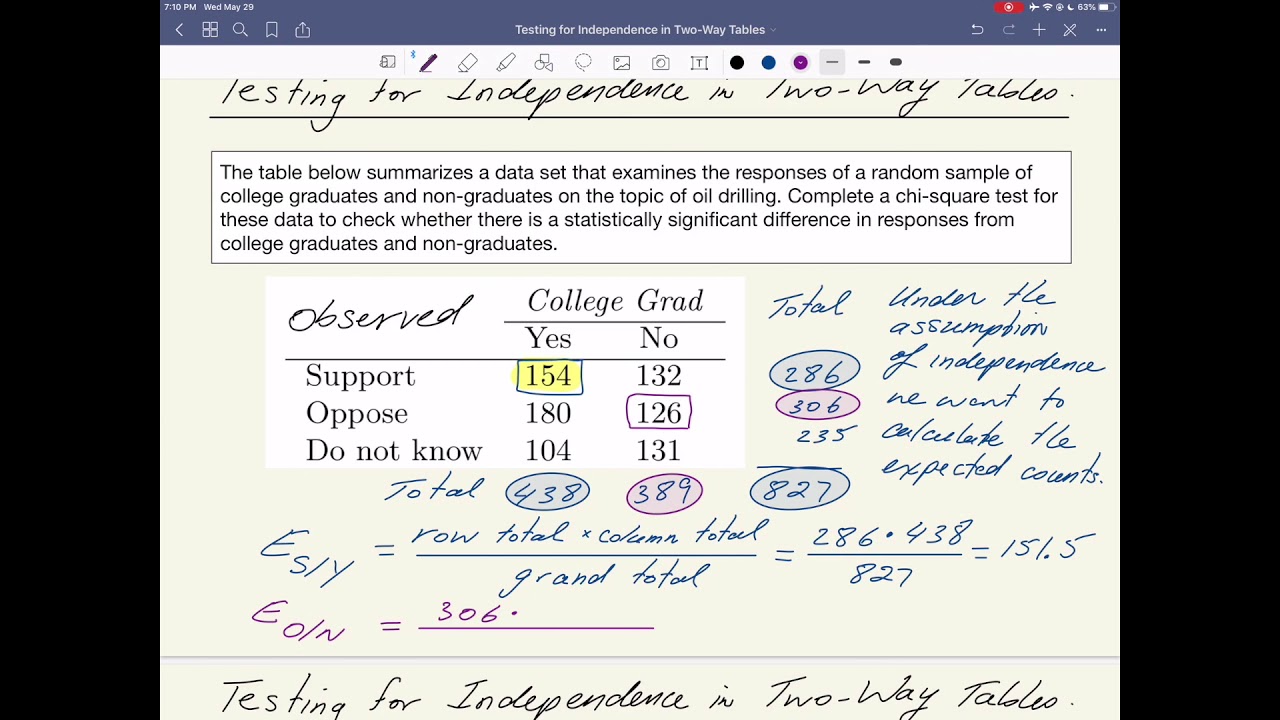 7:10 PM Wed May 29
63%
Testing for Independence in Two-Way Tables
Testing for Independence in Two-Way Tables.
The table below summarizes a data set that examines the responses of a random sample of
college graduates and non-graduates on the topic of oil drilling. Complete a chi-square test for
these data to check whether there is a statistically significant difference in responses from
college graduates and non-graduates.
Observed College Grad Total
Yes No
Support 154 132 286
Oppose 180 126 306
Do not know 104 131 235
Total 438 389 827
Under the
assumption
of independence
we want to
calculate the
expected counts.
E S/Y = row total × column total / grand total = 286 · 438 / 827 = 151.5
E O/N = 306 ·
Testing for Independence in Two-Way Tables.